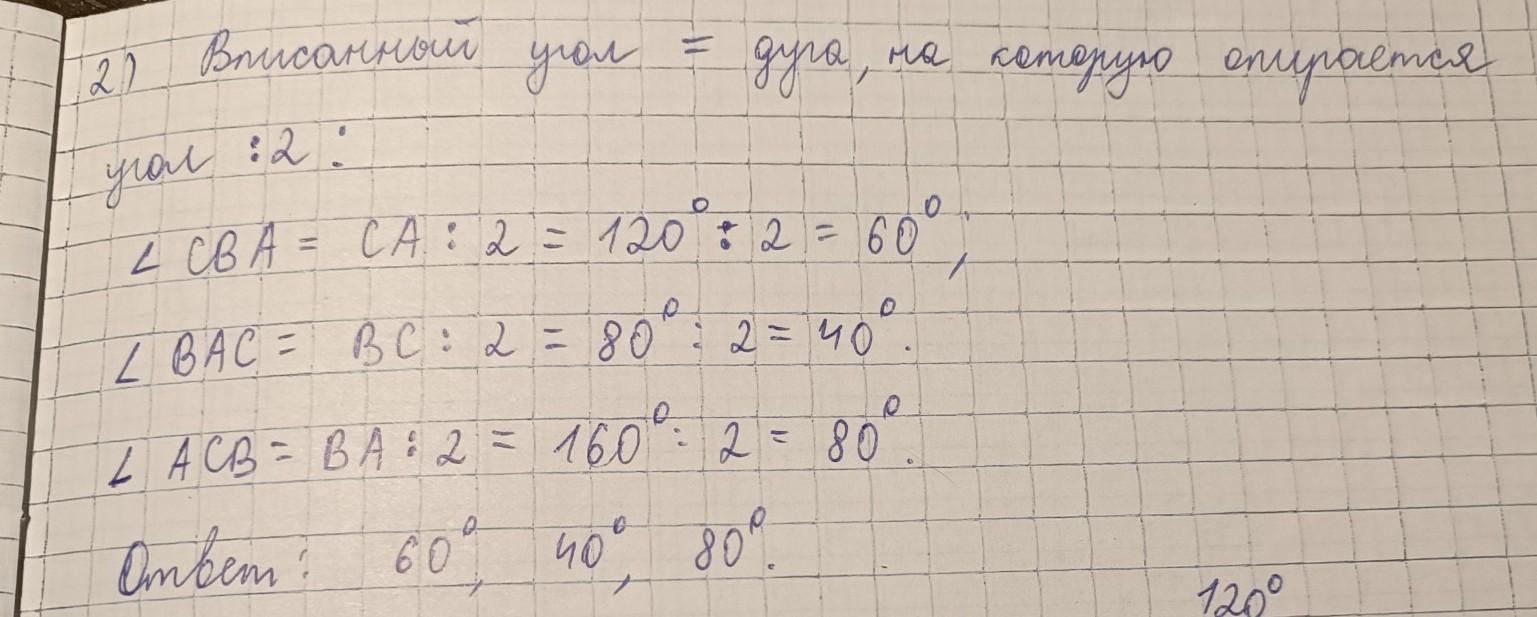 2) Вписанный угол = дуга, на которую опирается
угол :2 :
∠ CBA = CA : 2 = 120° : 2 = 60°;
∠ BAC = BC : 2 = 80° : 2 = 40°.
∠ ACB = BA : 2 = 160° : 2 = 80°.
Ответ: 60°, 40°, 80°.
120°